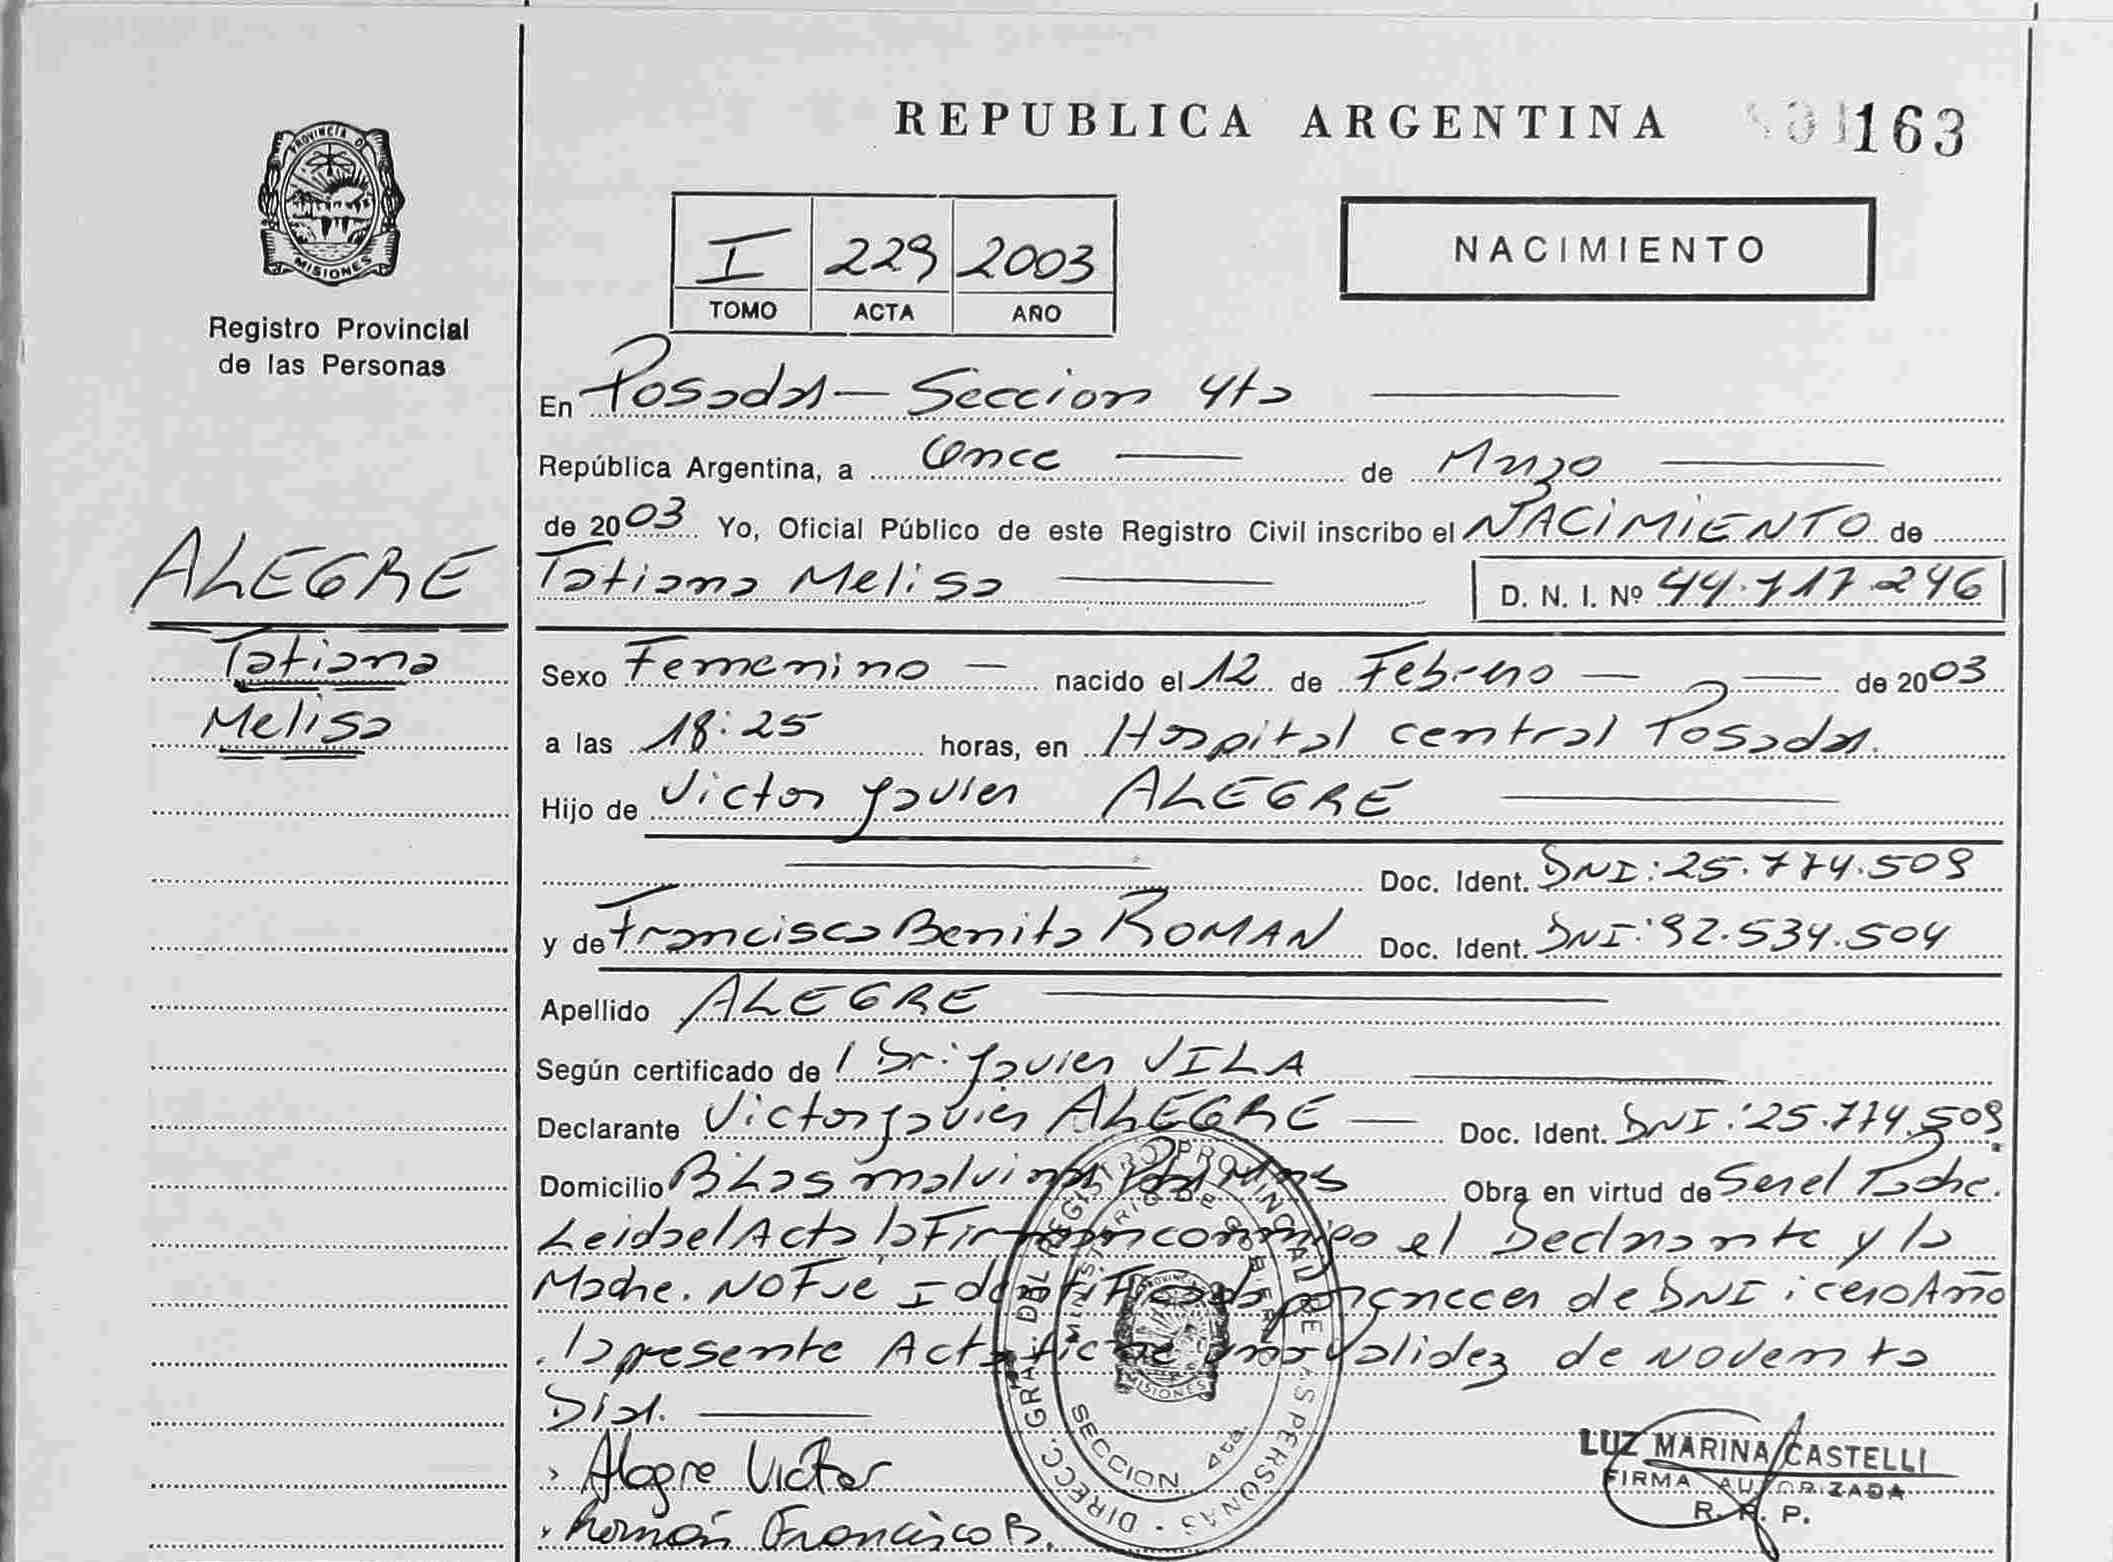 REPUBLICA ARGENTINA 163
PROVINCIA DE
MISIONES
Registro Provincial
de las Personas
I 229 2003
TOMO ACTA AÑO
NACIMIENTO
En Posadas — Seccion 4ta
República Argentina, a Once de Marzo
de 2003 Yo, Oficial Público de este Registro Civil inscribo el NACIMIENTO de
ALEGRE
Tatiana Melisa D. N. I. Nº 44.717.246
Tatiana
Melisa
Sexo Femenino — nacido el 12 de Febrero — de 2003
a las 18:25 horas, en Hospital central Posadas.
Hijo de Victor Javier ALEGRE
Doc. Ident. DNI: 25.774.509
y de Francisca Benita ROMAN Doc. Ident. DNI: 92.534.504
Apellido ALEGRE
Según certificado de Dr: Javier VILA
Declarante Victor Javier ALEGRE — Doc. Ident. DNI: 25.774.509
Domicilio Bº Las malvinas Posadas Obra en virtud de Ser el Padre.
Leida el Acta la Firman conmigo el Declarante y la
Madre. NO Fué Identificada por carecer de DNI: cero Año
la presente Acta tiene una validez de noventa
Dias.
Alegre Victor
Román Francisca B.
DIRECC. GRAL. DEL REGISTRO PROVINCIAL DE LAS PERSONAS
MINISTERIO DE GOBIERNO
MISIONES
SECCION 4ta.
LUZ MARINA CASTELLI
FIRMA AUTORIZADA
R. P. P.